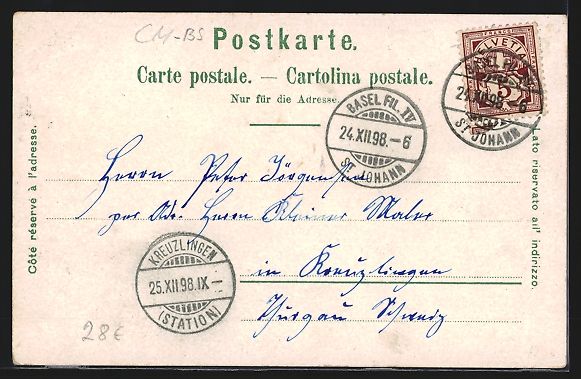 CM-BS
Postkarte.
Carte postale. — Cartolina postale.
Nur für die Adresse.
HELVETIA
5
BASEL FIL. IV
24.XII.98.-6
ST. JOHANN
BASEL FIL. IV
24.XII.98.-6
ST. JOHANN
Côté réservé à l'adresse.
Lato riservato all' indirizzo.
Herrn Peter Jörgensen
per Adr. Herrn Kleiner Maler
in Kreuzlingen
Thurgau Schweiz
KREUZLINGEN
25.XII.98.IX
(STATION)
28€